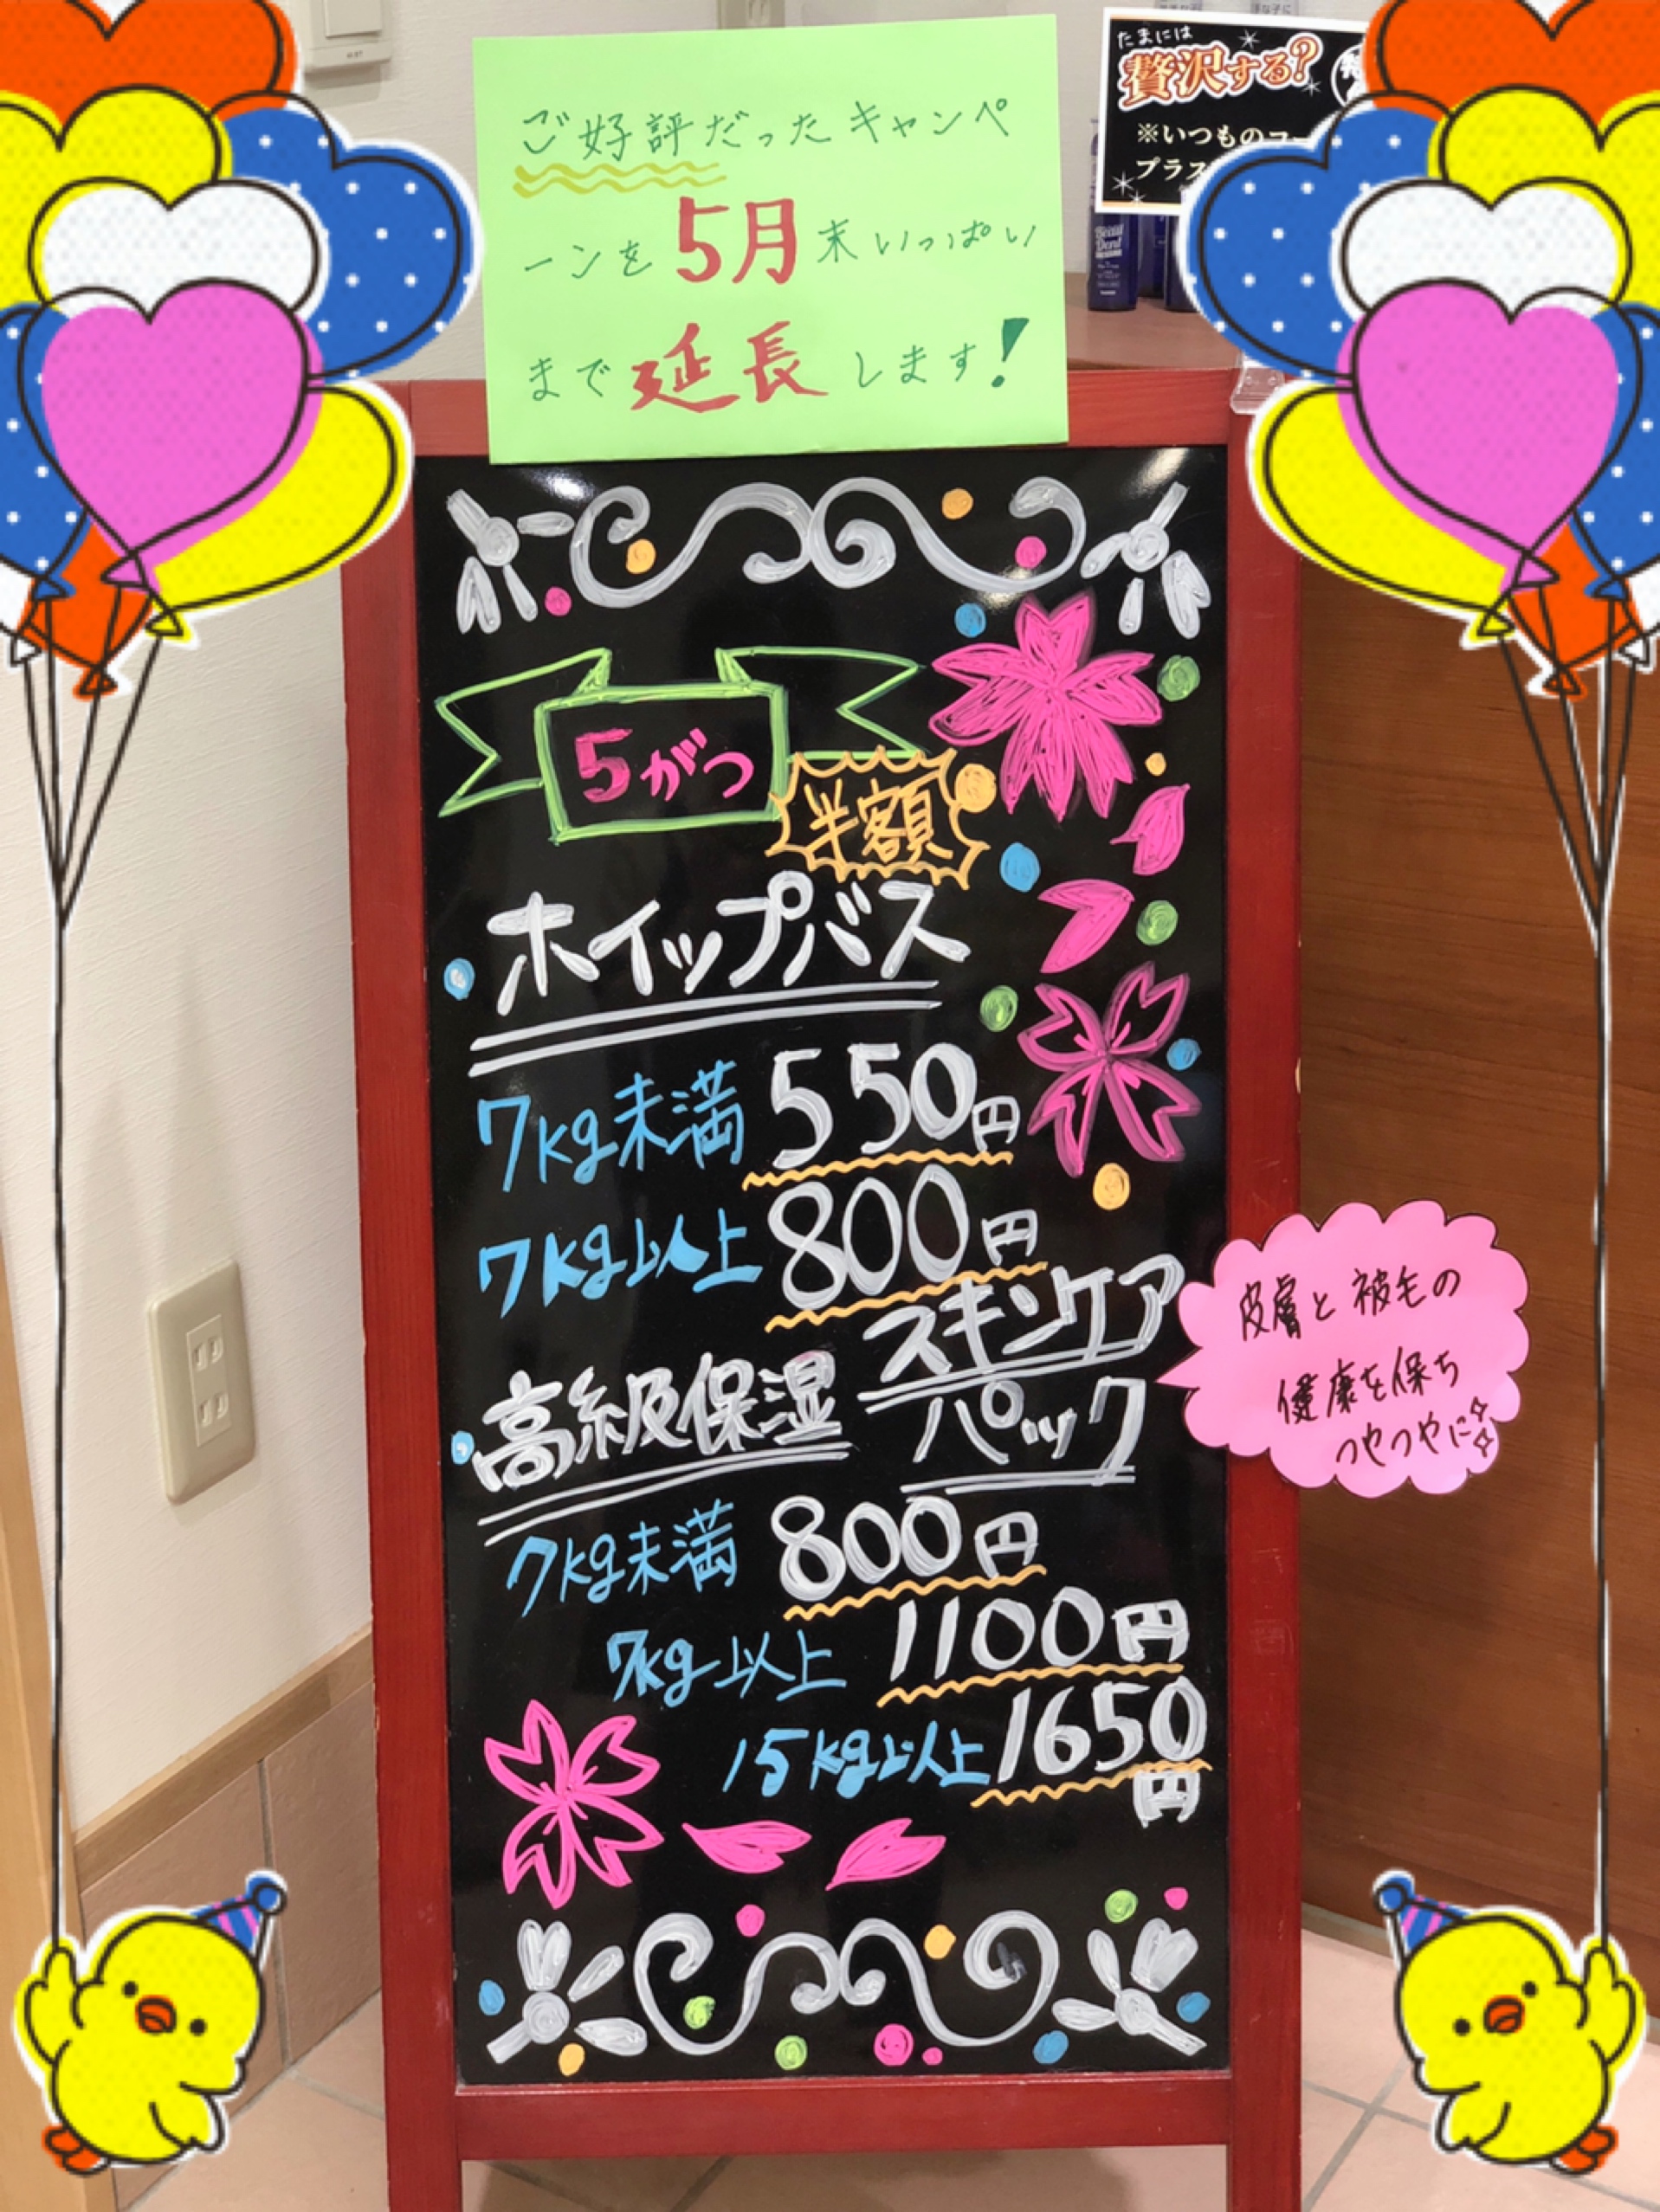 ご好評だったキャンペ
ーンを5月末いっぱい
まで延長します!
たまには
贅沢する?
※いつものコー
プラス
5がつ
半額
ホイップバス
7kg未満 550円
7kg以上 800円
高級保湿 スキンケア
パック
皮膚と被毛の
健康を保ち
つやつやに
7kg未満 800円
7kg以上 1100円
15kg以上 1650
円